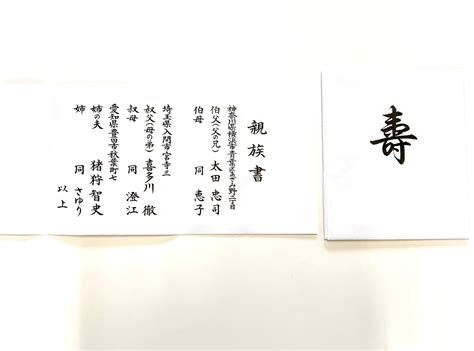 親族書
神奈川県横浜市青葉区あざみ野二丁目
伯父(父の兄) 太田忠司
伯母 同 恵子
埼玉県入間市宮寺三
叔父(母の弟) 喜多川徹
叔母 同 澄江
愛知県豊田市秋葉町七
姉の夫 猪狩智史
姉 同 さゆり
以上
寿